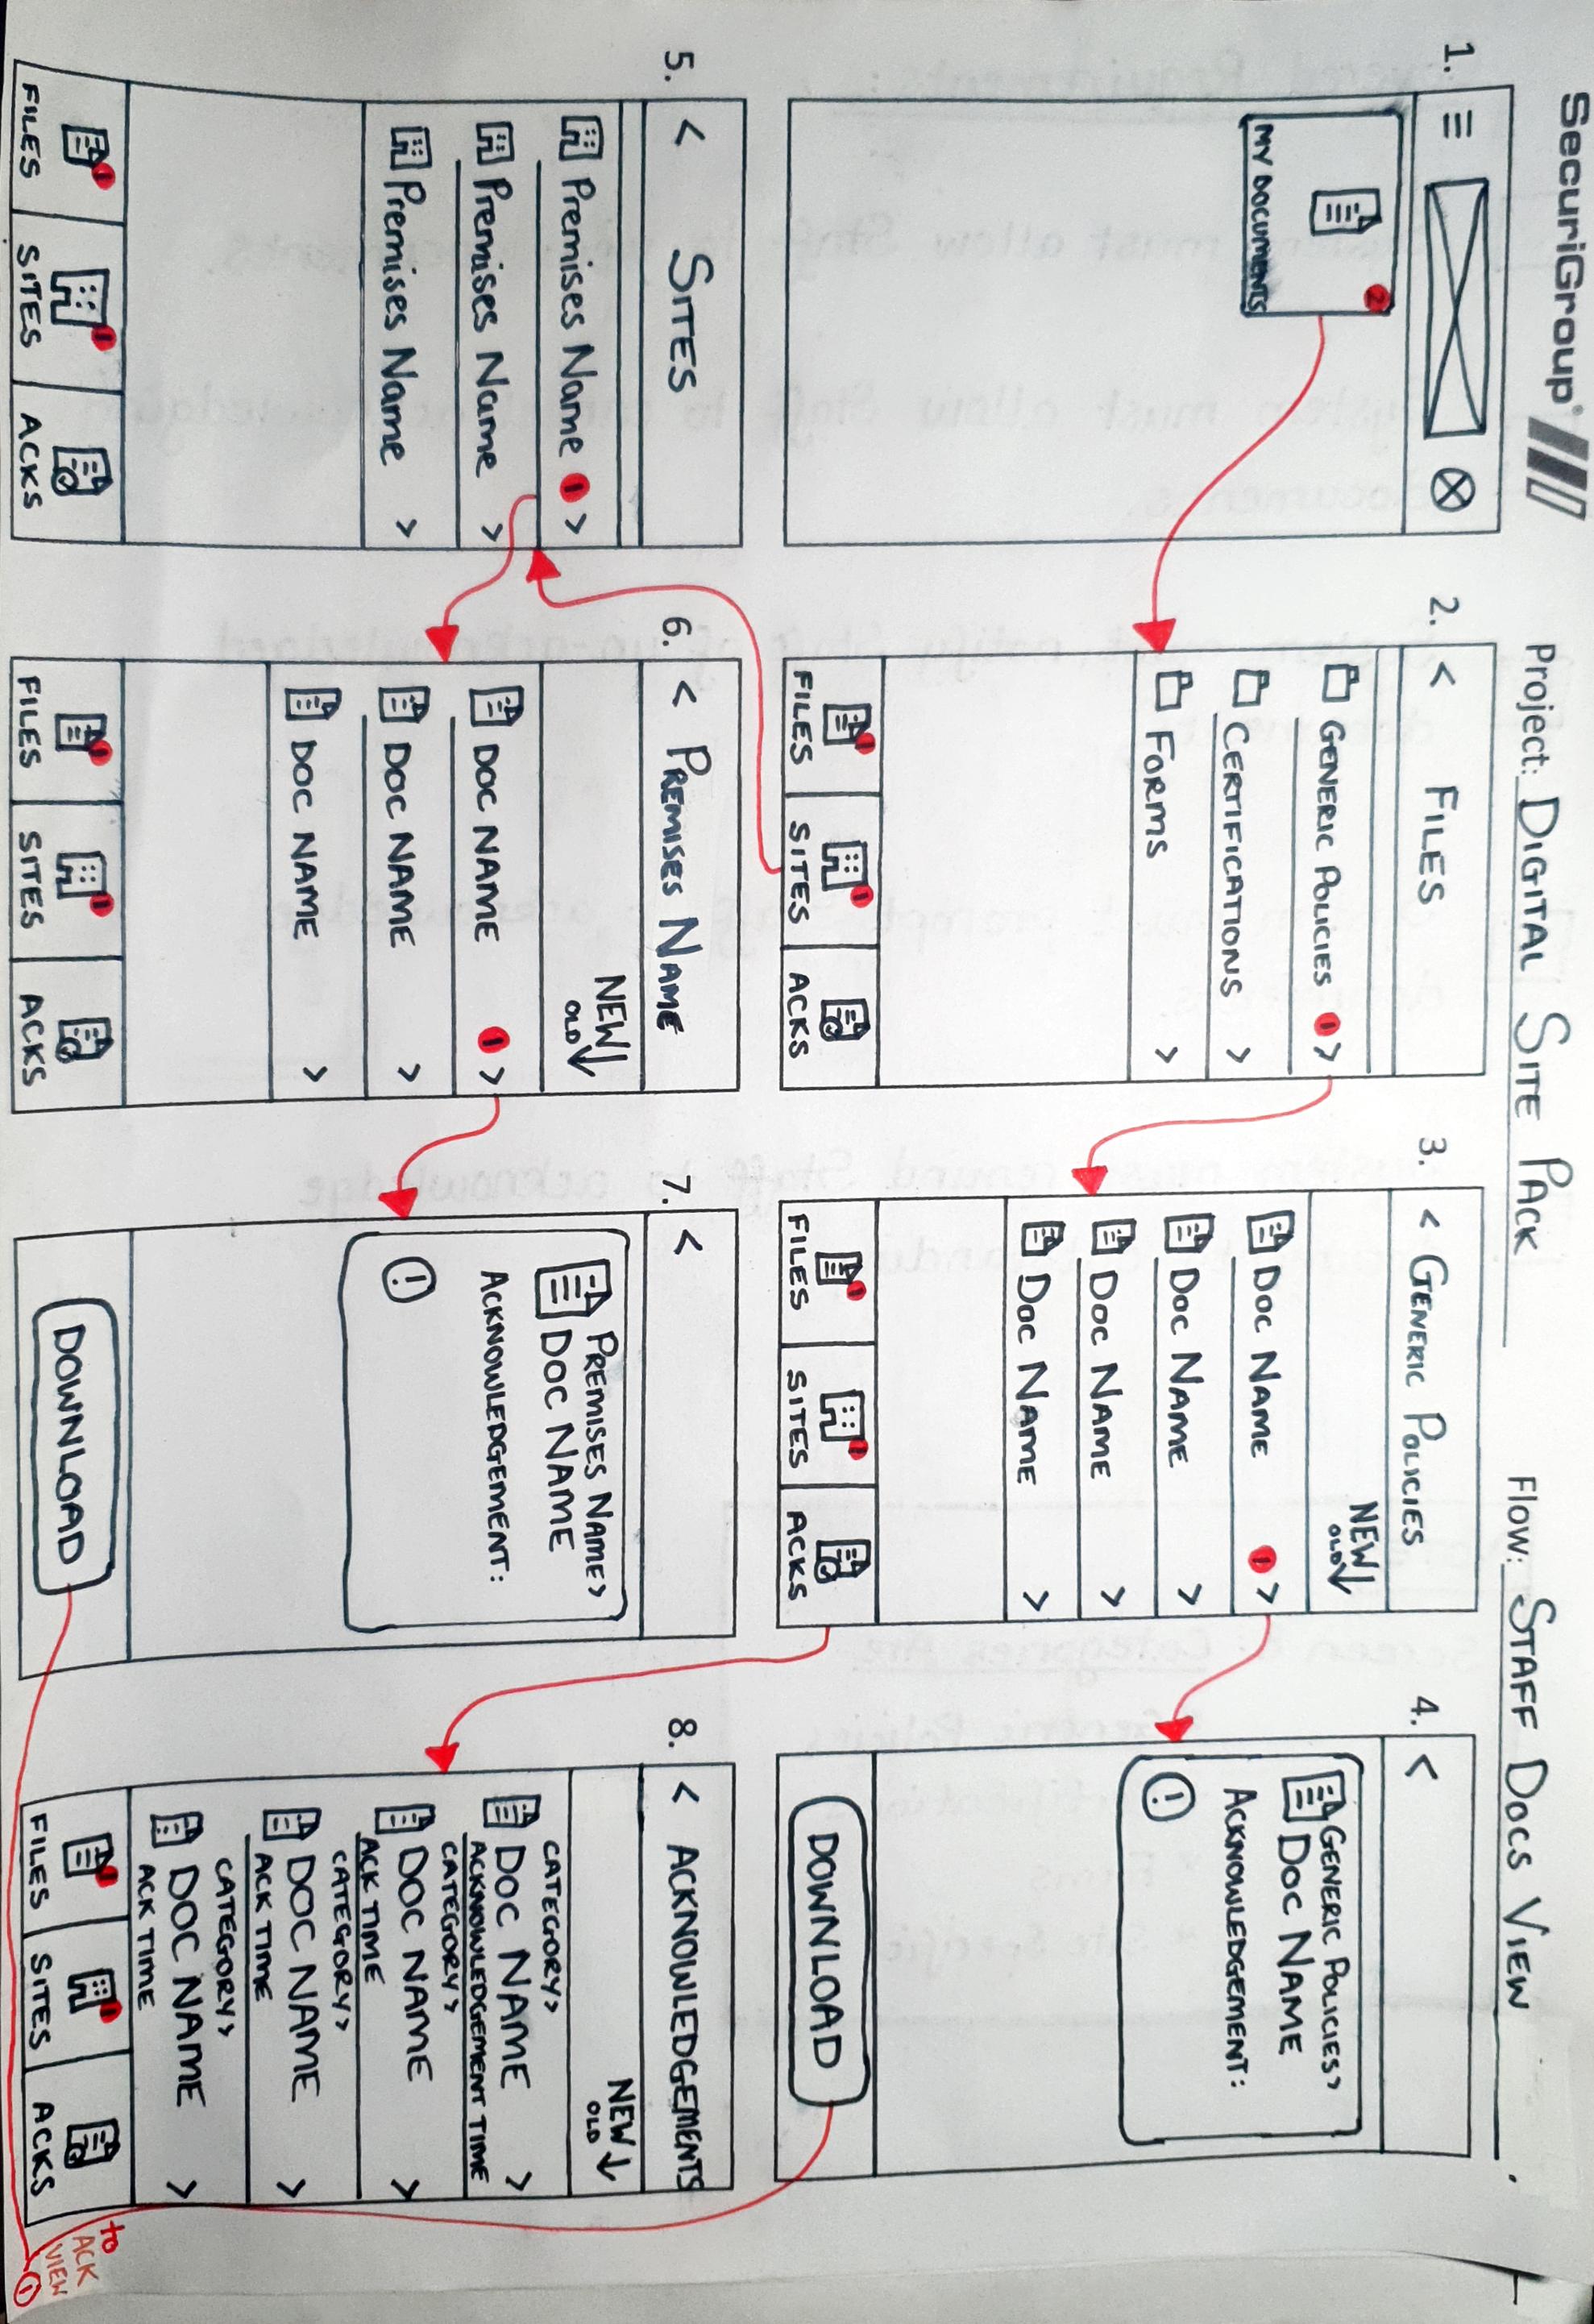 SecuriGroup
Project: DIGITAL SITE PACK
Flow: STAFF DOCS VIEW
1.
2
MY DOCUMENTS
2.
< FILES
GENERIC POLICIES 1 >
CERTIFICATIONS >
FORMS >
1 1
FILES SITES ACKS
3.
< GENERIC POLICIES
NEW
OLD
DOC NAME 1 >
DOC NAME >
DOC NAME >
DOC NAME >
1 1
FILES SITES ACKS
4.
<
GENERIC POLICIES>
DOC NAME
ACKNOWLEDGEMENT:
!
DOWNLOAD
5.
< SITES
Premises Name 1 >
Premises Name >
Premises Name >
1 1
FILES SITES ACKS
6.
< PREMISES NAME
NEW
OLD
DOC NAME 1 >
DOC NAME >
DOC NAME >
1 1
FILES SITES ACKS
7.
<
PREMISES NAME>
DOC NAME
ACKNOWLEDGEMENT:
!
DOWNLOAD
8.
< ACKNOWLEDGEMENTS
NEW
OLD
CATEGORY>
DOC NAME >
ACKNOWLEDGEMENT TIME
CATEGORY>
DOC NAME >
ACK TIME
CATEGORY>
DOC NAME >
ACK TIME
CATEGORY>
DOC NAME >
ACK TIME
1 1
FILES SITES ACKS
to
ACK
VIEW
1